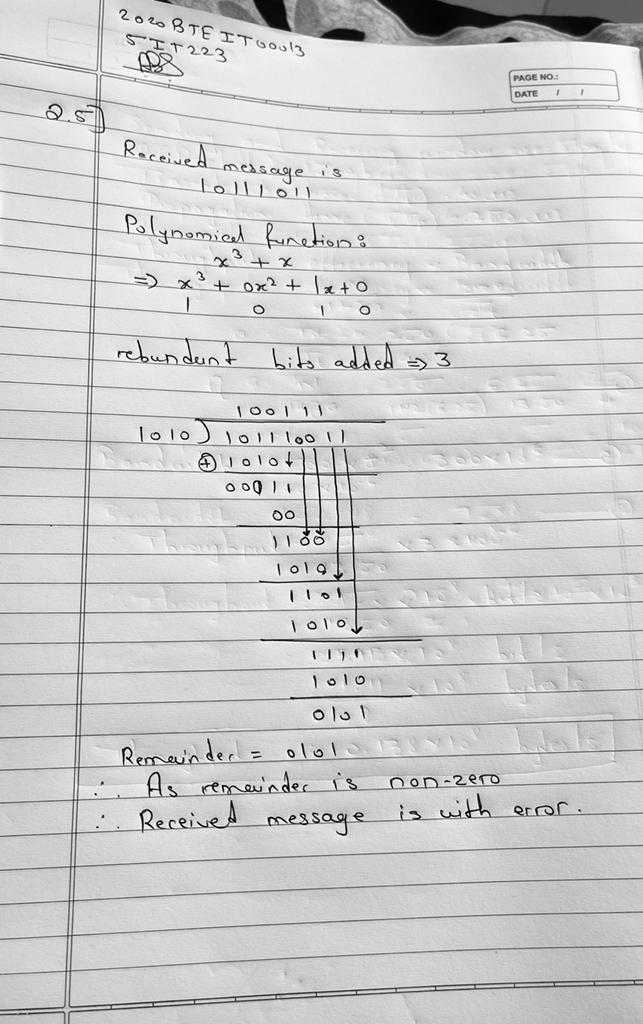 2020BTEIT00013
5IT223
PAGE NO.:
DATE / /
2.5]
Received message is
10111011
Polynomical function:
x³ + x
⇒ x³ + 0x² + 1x + 0
1 0 1 0
rebundent bits added ⇒ 3
100111
1010 ) 101110011
⊕ 1010
00011
00
1100
1010
1101
1010
1111
1010
0101
Remainder = 0101
∴ As remainder is non-zero
∴ Received message is with error.